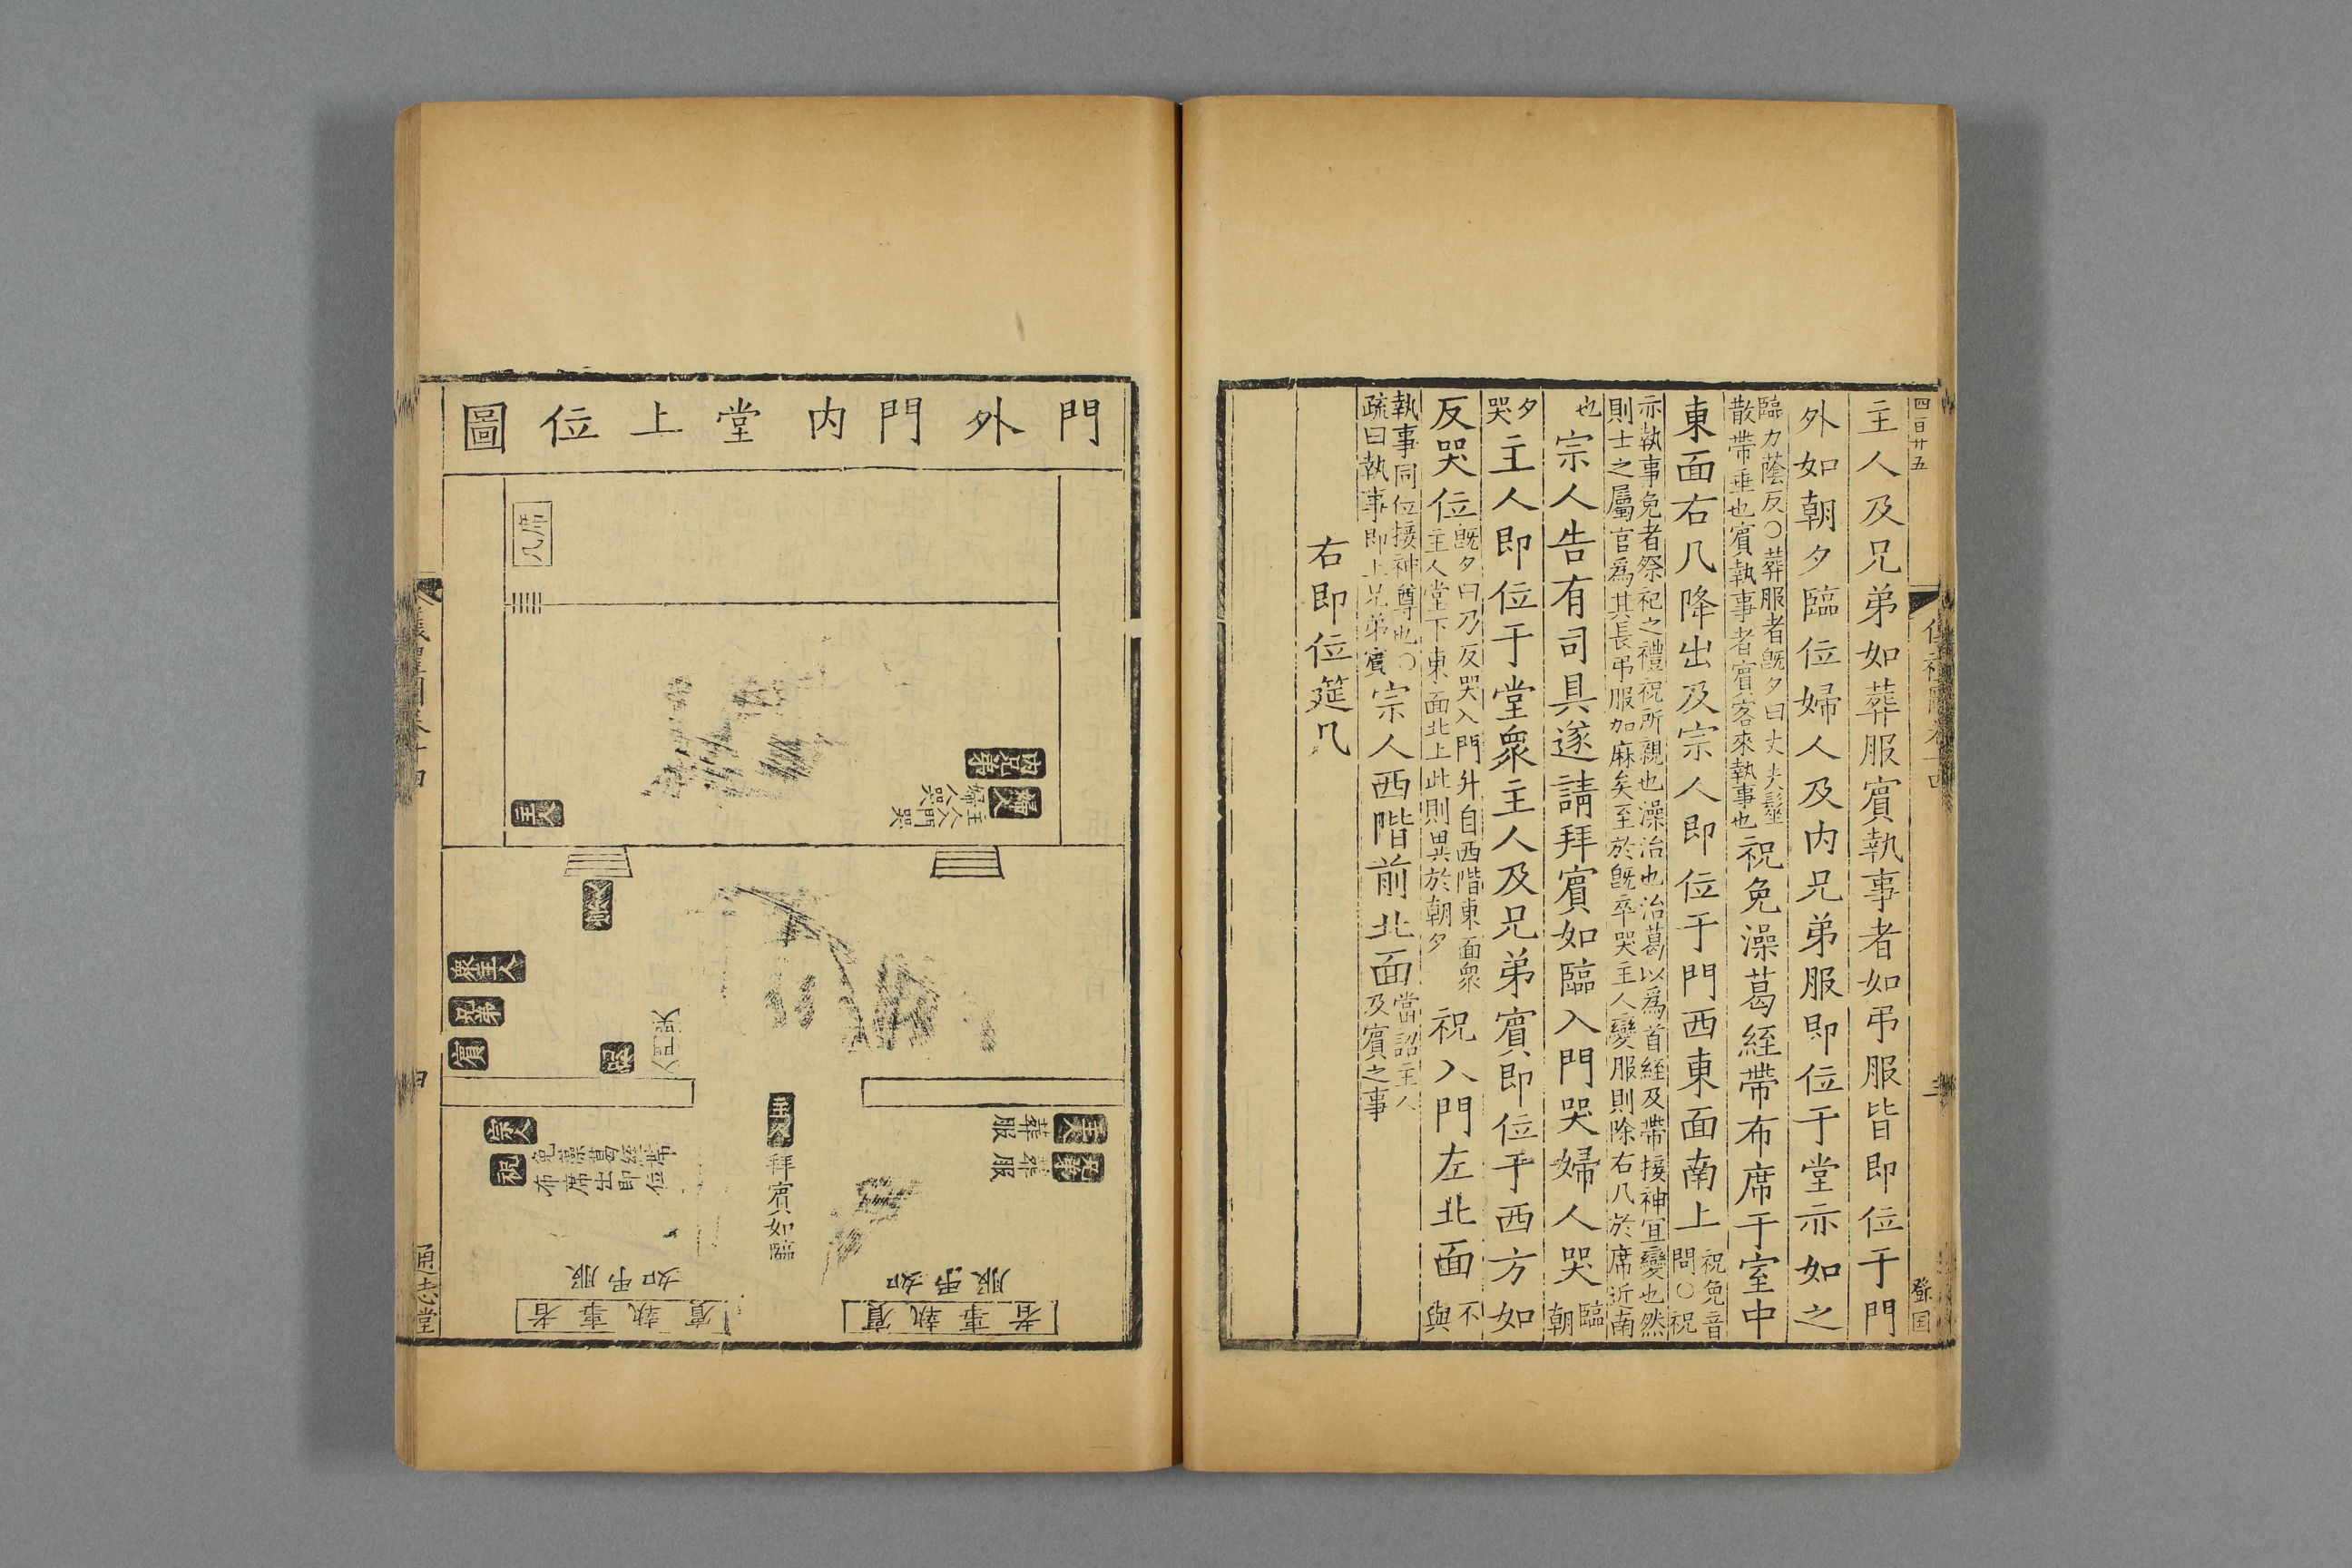 四百廿五
登国
主人及兄弟如葬服賔執事者如弔服皆即位于門
外如朝夕臨位婦人及内兄弟服即位于堂亦如之
臨力蔭反○葬服者旣夕曰丈夫髽
散帶垂也賔執事者賔客來執事也
祝免澡葛絰帶布席于室中
東面右几降出及宗人即位于門西東面南上
祝免音
問○祝
亦執事免者祭祀之禮祝所親也澡治也治葛以爲首絰及帶接神宜變也然
則士之屬官爲其長弔服加麻矣至於旣卒哭主人變服則除右几於席近南
也
宗人告有司具遂請拜賔如臨入門哭婦人哭
臨
朝
夕
哭
主人即位于堂衆主人及兄弟賔即位于西方如
反哭位
旣夕曰乃反哭入門升自西階東面衆
主人堂下東面北上此則異於朝夕
祝入門左北面
不
與
執事同位接神尊也○
疏曰執事即上兄弟賔
宗人西階前北面
當詔主人
及賔之事
右即位筵几
門外門内堂上位圖
几席
内兄弟
婦人
婦人哭
主人門哭
主人
宗人
衆主人
兄弟
賔
祝
主人
葬服
兄弟
葬服
主人
拜賔如臨
宗人
祝
免澡葛絰席
布席出即位
如弔服
賔執事者
如弔服
賔執事者
通志堂